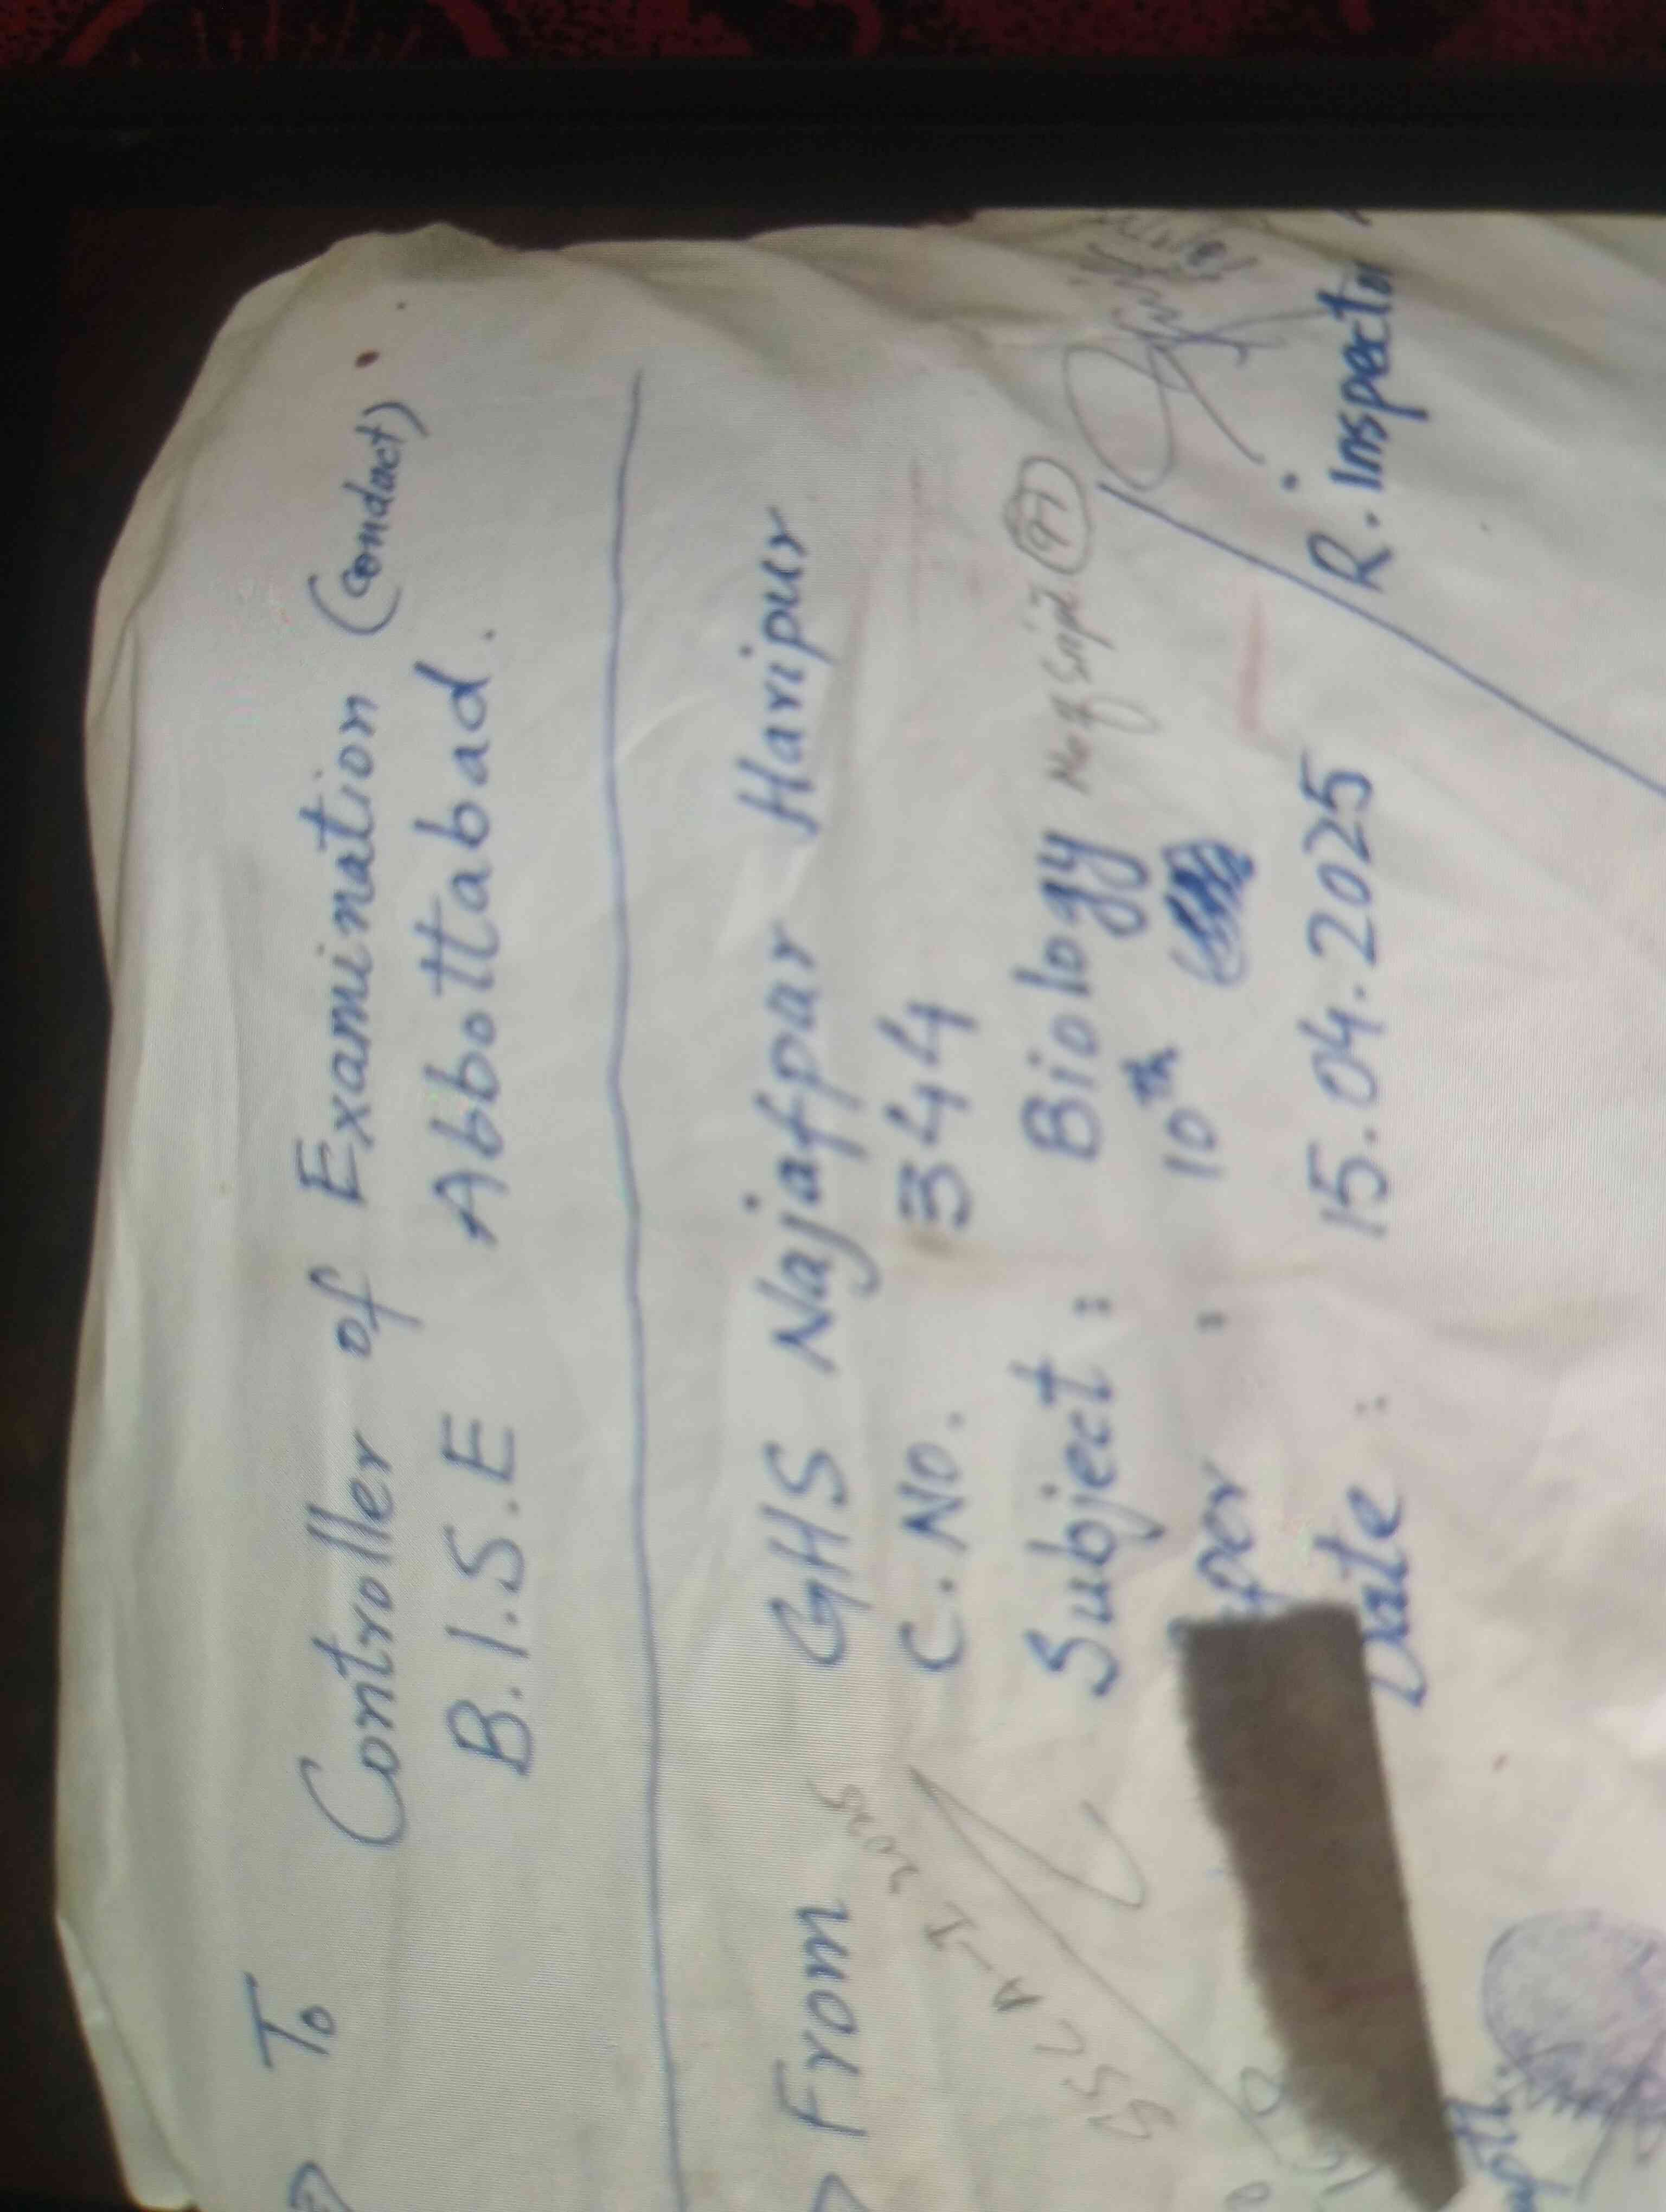 To
Controller of Examination (Conduct)
B.I.S.E Abbottabad.
From GHS Najafpar Haripur
C.No. 344
Subject : Biology No of Script (97)
per : 10th
Date : 15.04.2025
R. Inspector
SSC A-I 2025